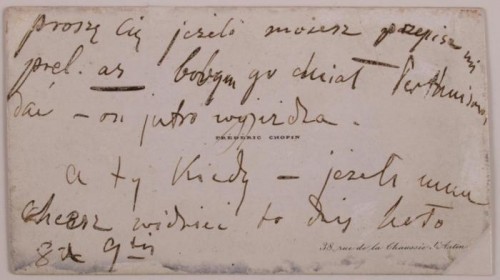 proszę Cię jeżeli możesz przepisz mi
prel. as bobym go chciał Perthuisowi
dać – on jutro wyjeżdża.
FREDERIC CHOPIN
a ty kiedy – jeżeli mnie
chcesz widzieć to dziś koło
9tej
38, rue de la Chaussée d'Antin